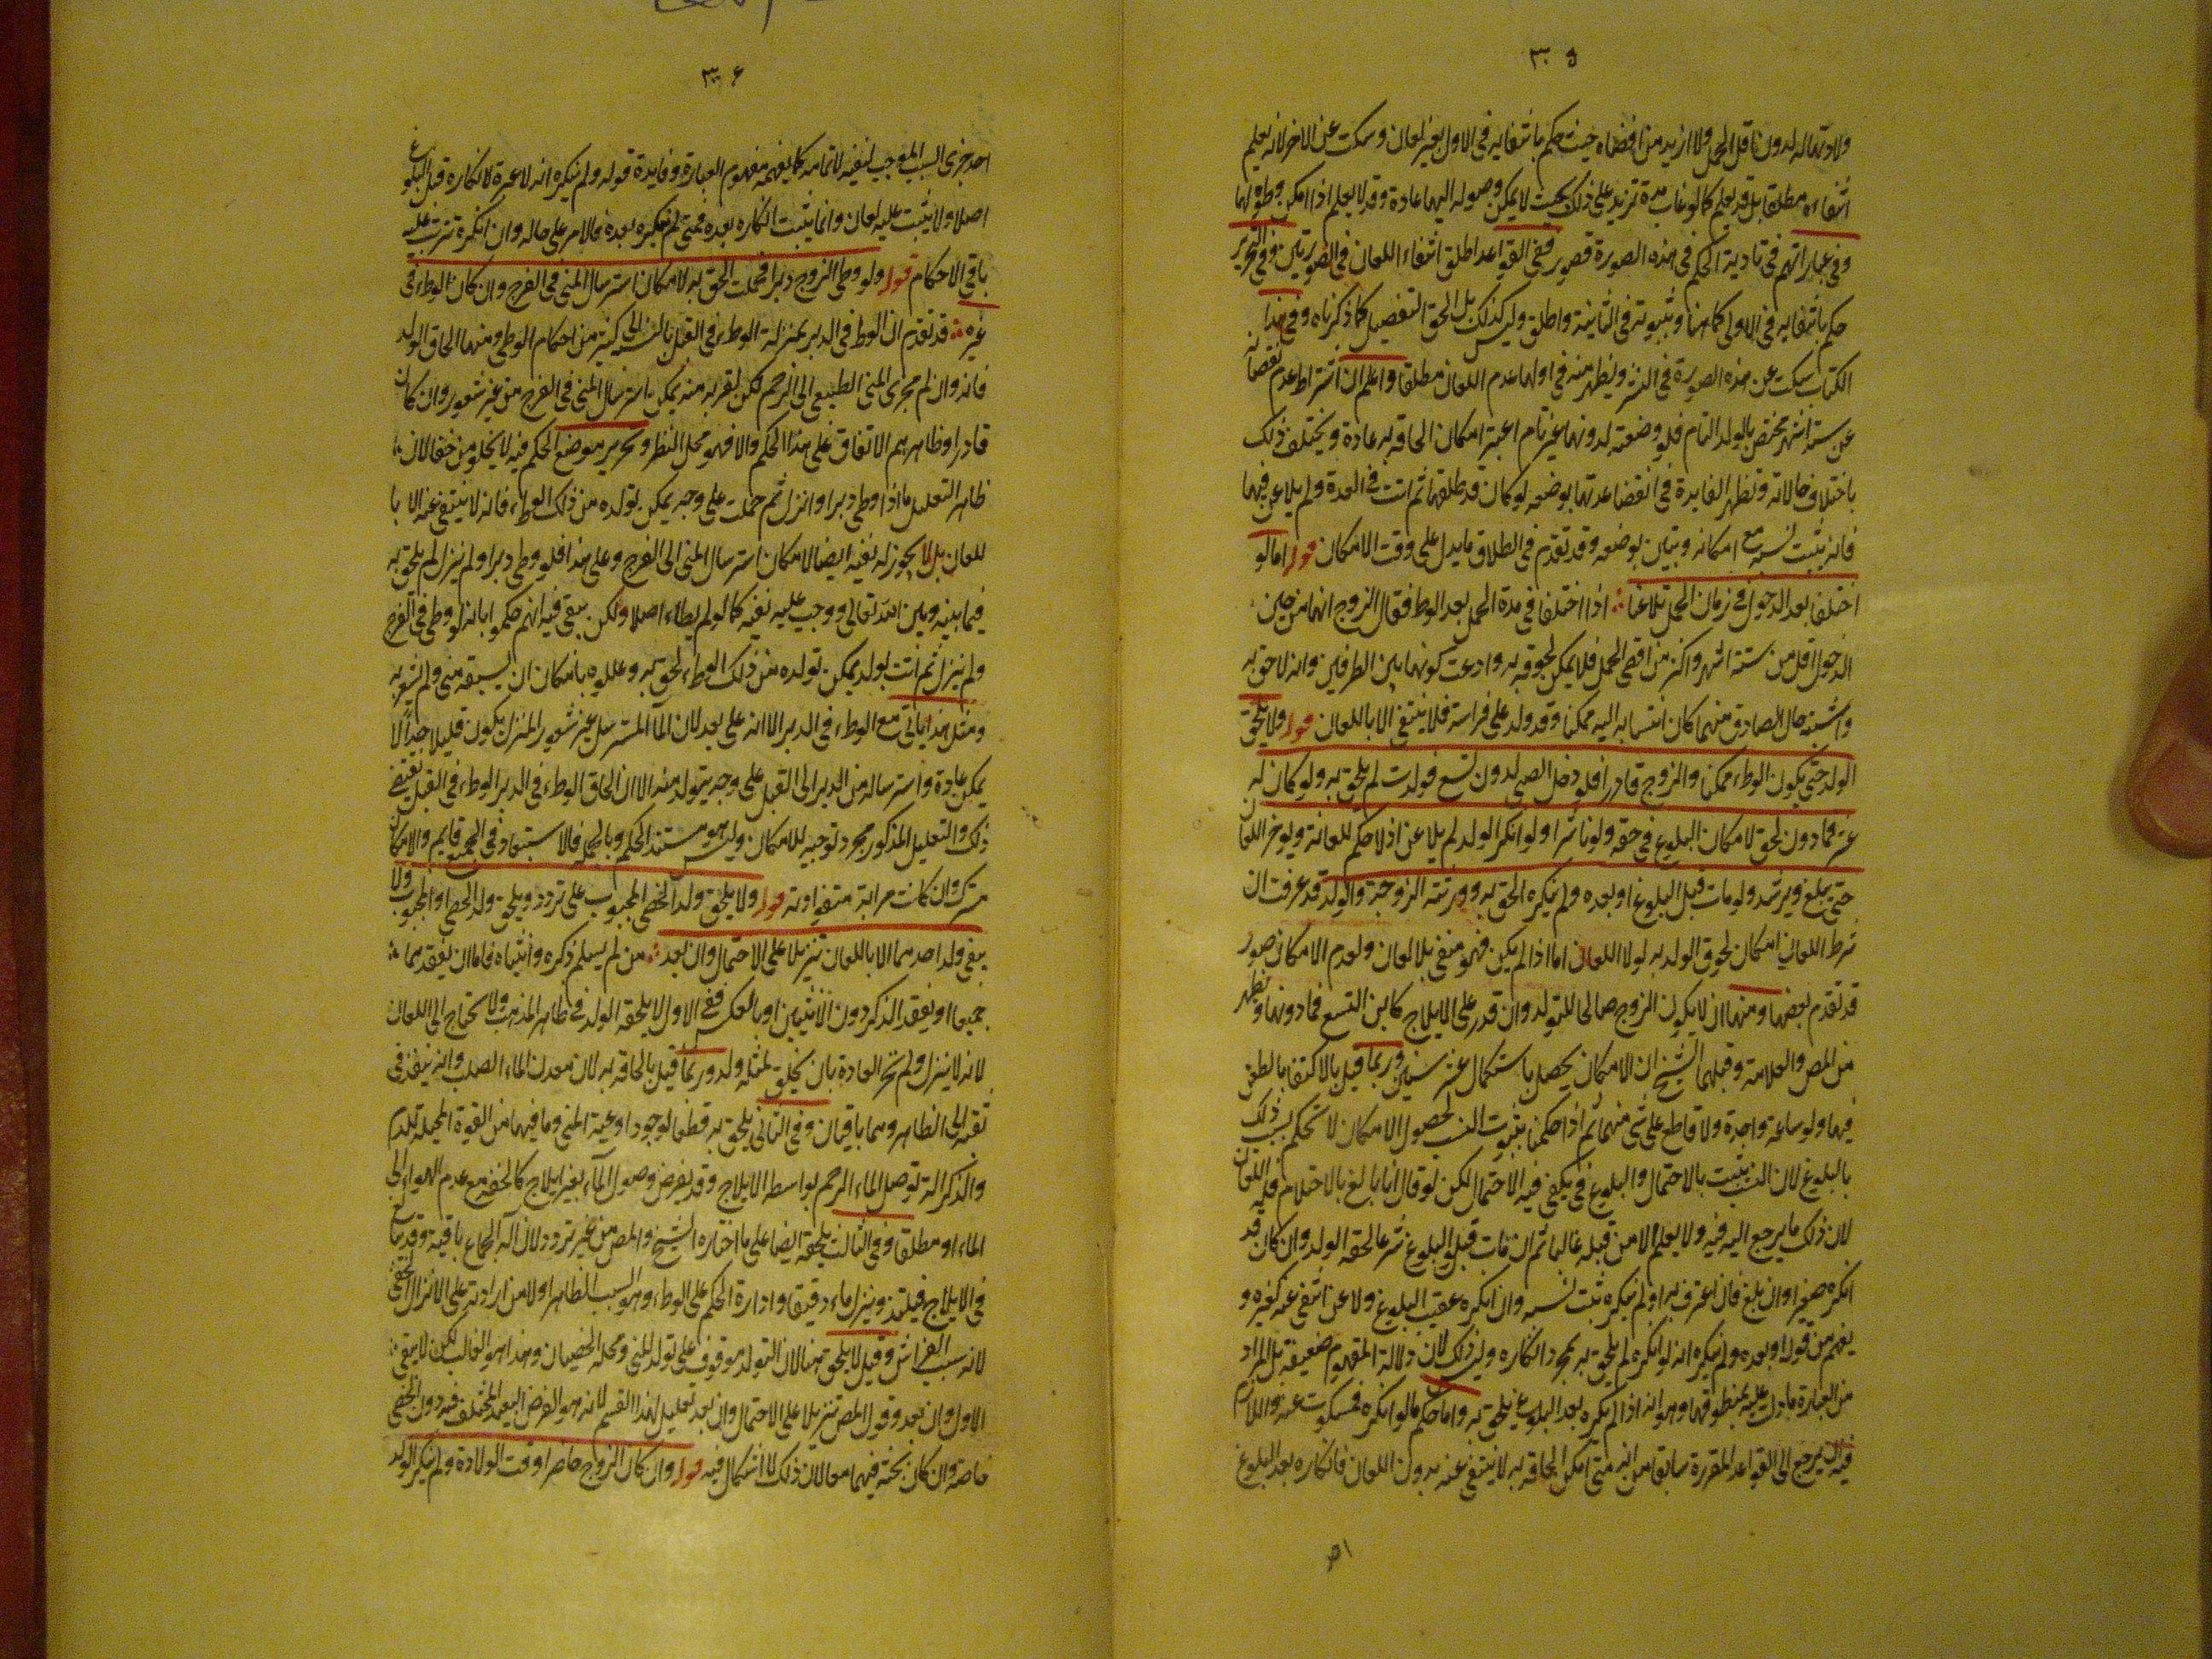 ٣٠٥
ولادتها له لدون اقل الحمل ولا ازيد من اقصاه حيث حكم بانتفايه في الاول بغير لعان وسكت عن الاخر لانه لا يعلم
انتفاءه مطلقا بل قد يعلم كما لو غاب مدة تزيد على ذلك بحيث لا يمكن وصوله اليها عادة وقد لا يعلم اذا امكن وطؤ لها
وفي عباراتهم في تادية الحكم في هذه الصورة قصور ففي القواعد اطلق انتفاء اللعان في الصورتين وفي التحرير
حكم بانتفايه في الاولى كما هنا وثبوته في الثانية واطلق وليس كذلك بل الحق التفصيل كما ذكرناه وفي هذا
الكتاب سكت عن هذه الصورة في النشر ويظهر منه في اولها عدم اللعان مطلقا واعلم ان اشتراط عدم نقصانه
عن ستة اشهر مختص بالولد التام فلو وضعته لدونها غير تام اعتبر امكان الحاقه به عادة ويختلف ذلك
باختلاف حالاته وتظهر الفايدة في انقضاء عدتها بوضعه لو كان قد طلقها ثم اتت في العدة ولم يلاعن فيها
فانه يثبت نسبه مع امكانه وتبين بوضعه وقد تقدم في الطلاق ما يدل على وقت الامكان قوله اما لو
اختلفا بعد الدخول في زمان الحمل تلاعنا اذا اختلفا في مدة الحمل بعد الوطء فقال الزوج انها من حين
الدخول اقل من ستة اشهر او اكثر من اقصى الحمل فلا يمكن لحوقه به وادعت كونها بين الطرفين وانه لاحق به
واشتبه حال الصادق منهما كان انتسابه اليه ممكنا وقد ولد على فراشه فلا ينتفي الا باللعان قوله ولا يلحق
الولد حتى يكون الوطء ممكنا والزوج قادرا فلو دخل الصبي لدون تسع فولدت لم يلحق به ولو كان له
عشر فما دون لحق لامكان البلوغ في حقه ولو نادرا ولو انكر الولد لم يلاعن اذ لا حكم للعانه ويؤخر اللعان
حتى يبلغ ويرشد ولو مات قبل البلوغ او بعده ولم ينكره الحق به وورثته الزوجة والولد قد عرفت ان
شرط اللعان امكان لحوق الولد به لولا اللعان اما اذا لم يكن فهو منفي بلا لعان ولعدم الامكان صور
قد تقدم بعضها ومنها ان لا يكون الزوج صالحا للتولد وان قدر على الايلاج كابن التسع فما دونها ويظهر
من المص والعلامة وقبلهما الشيخ ان الامكان يحصل باستكمال عشر سنين وربما قيل بالاكتفا بالطعن
فيها ولو ساعة واحدة ولا قاطع على شئ منهما ثم اذا حكمنا بثبوت النسب لحصول الامكان لا نحكم بسبب ذلك
بالبلوغ لان النسب يثبت بالاحتمال والبلوغ لا يكفي فيه الاحتمال لكن لو قال انا بالغ بالاحتلام فله اللعان
لان ذلك ما يرجع اليه فيه ولا يعلم الا من قبله غالبا ثم ان مات قبل البلوغ شرعا لحقه الولد وان كان قد
انكره صغيرا وان بلغ فان اعترف به او لم ينكره ثبت نسبه وان انكره عقيب البلوغ ولاعن انتفى عنه كغيره و
يفهم من قوله او بعده ولم ينكره انه لو انكره لم يلحق به بمجرد انكاره وليس ذلك لان دلالة المفهوم ضعيفة بل المراد
من العبارة ما دلت عليه بمنطوقها وهو انه اذا لم ينكره بعد البلوغ يلحق به واما حكم ما لو انكره فمسكوت عنه واللازم
فيه ان يرجع الى القواعد المقررة سابقا من انه متى امكن الحاقه به لا ينتفي عنه بدون اللعان فانكاره بعد البلوغ
احد
٣٠٦
احد جزئي السبب الموجب لنفيه لا تمامه كما يفهمه مفهوم العبارة وفايدة قوله ولم ينكره انه لا عبرة لانكاره قبل البلوغ
اصلا ولا يثبت عليه لعان وانما يثبت انكاره بعده فمتى لم ينكره بعده فالامر على حاله وان انكره ترتب عليه
باقي الاحكام قوله ولو وطئ الزوج دبرا فحملت الحق به لامكان استرسال المني في الفرج وان كان الوطء في
غيره قد تقدم ان الوطء في الدبر بمنزلة الوطء في القبل بالنسبة الى كثير من احكام الوطي ومنها الحاق الولد
فانه وان لم مجرى المني الطبيعي الى الرحم لكن لقربه منه يمكن استرسال المني في الفرج من غير شعور وان كان
قادرا وظاهرهم الاتفاق على هذا الحكم والا فهو محل النظر وتحرير موضع الحكم فيه لا يخلو من خفا لان
ظاهر التعليل ما اذا وطي دبرا وانزل ثم حملت على وجه يمكن تولده من ذلك الوطء فانه لا ينتفي عنه الا با
للعان بل لا يجوز له نفيه ايضا لامكان استرسال المني الى الفرج وعلى هذا فلو وطي دبرا ولم ينزل لم يلحق به
فيما بينه وبين الله تعالى ووجب عليه نفيه كما لو لم يطأ اصلا ولكن يبقى فيه انهم حكموا بانه لو وطي في الفرج
ولم ينزل ثم اتت بولد يمكن تولده من ذلك الوطء لحق به وعللوه بامكان ان يسبقه مني ولم يشعر به
ومثل هذا ياتي مع الوطء في الدبر الا انه على بعد لان الماء المسترسل غير شعور المنزل يكون قليلا جدا لا
يمكن عادة واسترساله من الدبر الى القبل على وجه يتولد منه الا ان الحاق الوطء في الدبر الوطء في القبل يقتضي
ذلك والتعليل المذكور مجرد توجيه للامكان وليس هو مستند الحكم وبالجملة فالاستبعاد في الجميع قايم والامكان
مشترك وان كانت مراتبه متفاوتة قوله ولا يلحق ولد الخصي المجبوب على تردد ويلحق ولد الخصي او المجبوب ولا
ينفي ولد احدهما الا باللعان تنزيلا على الاحتمال وان بعد من لم يسلم ذكره وانثياه فاما ان يفقدهما
جميعا او يفقد الذكر دون الانثيين او بالعكس ففي الاول لا يلحقه الولد في ظاهر المذهب ولا يحتاج الى اللعان
لانه لا ينزل ولم تجر العادة بان يخلق لمثله ولد وربما قيل بالحاقه به لان معدن الماء الصلب وانه ينفذ في
ثقبه الى الظاهر وهما باقيان وفي الثاني يلحق به قطعا لوجود اوعية المني وما فيهما من القوة المحيلة للدم
والذكر الة توصل الماء الرحم بواسطة الايلاج وقد يفرض وصول الماء بغير ايلاج كالخفه مع عدم الهواء الى
الماء او مطلقا وفي الثالث يلحقه ايضا على ما اختاره الشيخ والمص من غير تردد لان آلة الجماع باقية وقد يبالغ
في الايلاج فيلتذ وينزل ماء رقيقا وادارة الحكم على الوطء وهو السبب الظاهر اولا من ادارته على الانزال الخفي
لانه سبب الفراش وقيل لا يلحق هنا لان التولد موقوف على تولد المني ومحله الخصيان وهذا هو الغالب لكن لا ينفي
الاول وان بعد وقول المص تنزيلا على الاحتمال وان بعد تعليل لهذا القسم لانه هو الفرض البعيد المختلف فيه دون الخصي
خاصة وان كان بحثه فيهما معا لان ذلك لا اشكال فيه قوله وان كان الزوج حاضرا وقت الولادة ولم ينكر الولد